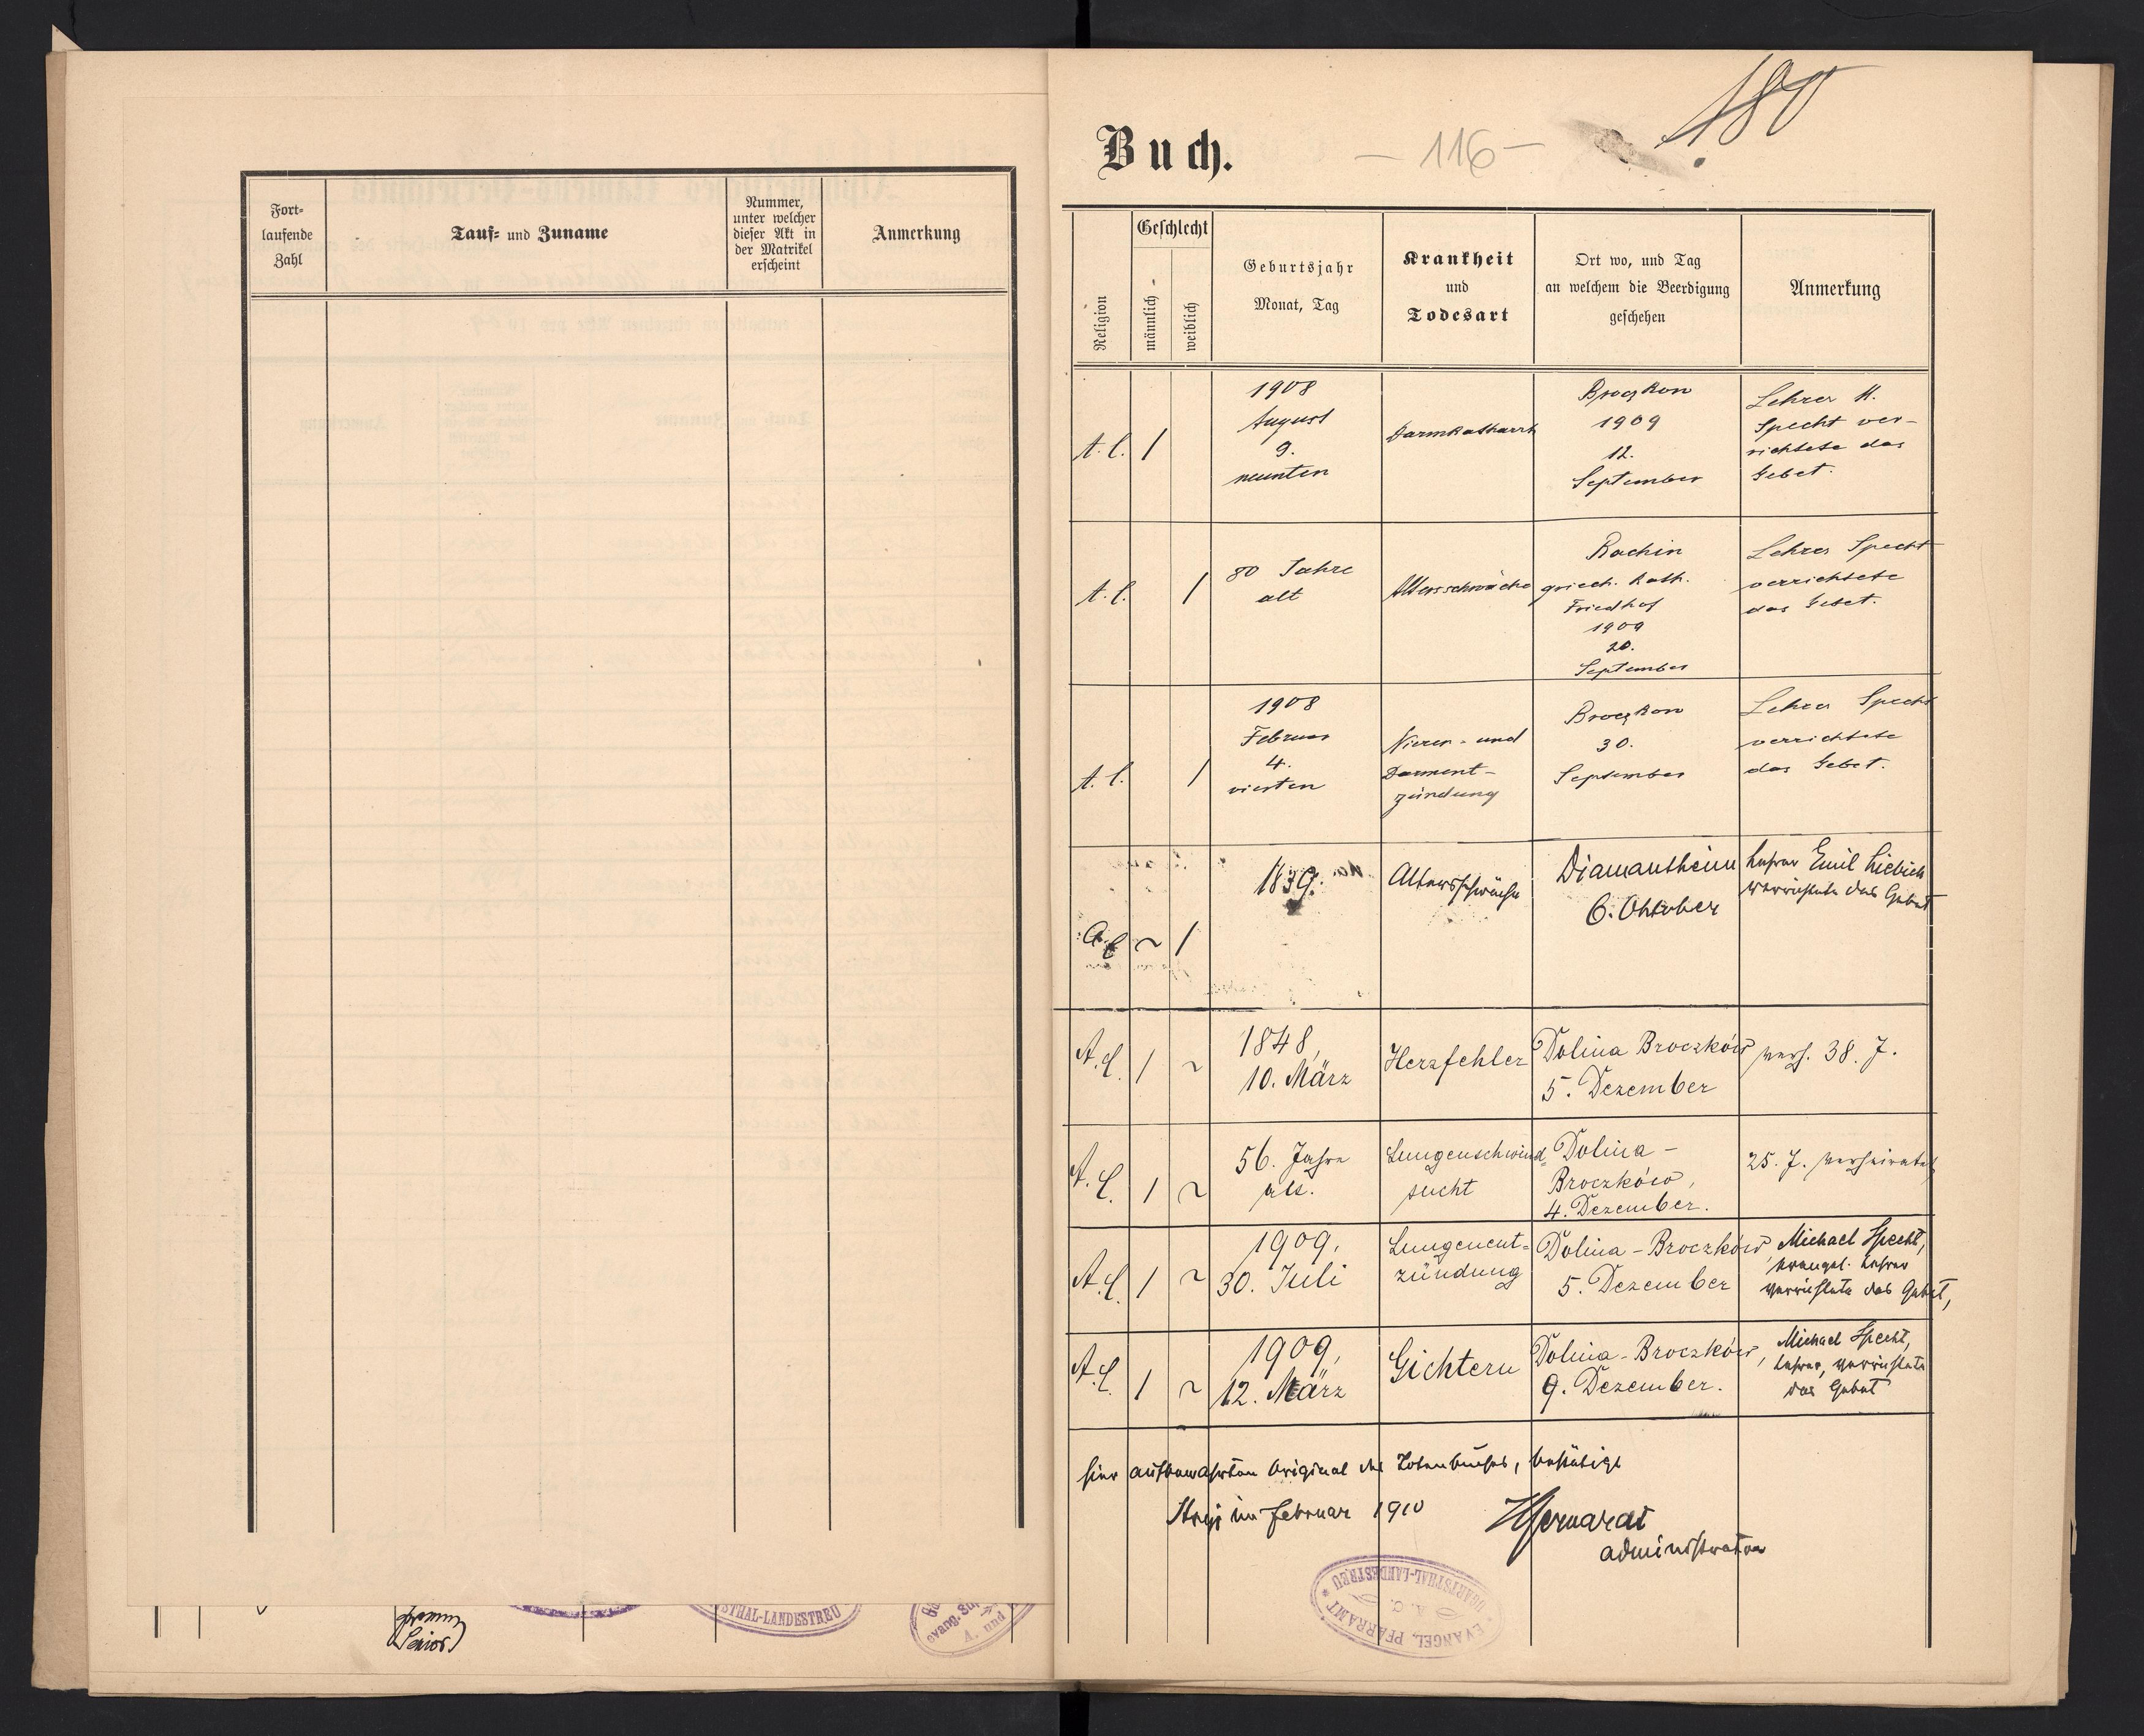 Fort-
laufende
Zahl
Tauf- und Zuname
Nummer,
unter welcher
dieser Akt in
der Matrikel
erscheint
Anmerkung
Senior
STHAL-LANDESTREU
evang. Su
A. und
180
Buch.
— 116 —
Religion
Geschlecht
männlich
weiblich
Geburtsjahr
Monat, Tag
Krankheit
und
Todesart
Ort wo, und Tag
an welchem die Beerdigung
geschehen
Anmerkung
A. C.
1
1908
August
9.
neunten
Darmkatharrh
Broczkow
1909
12.
September
Lehrer M.
Specht ver-
richtete das
Gebet.
A. C.
1
80 Jahre
alt
Altersschwäche
Rachin
griech. kath.
Friedhof
1909
20.
September
Lehrer Specht
verrichtete
das Gebet.
A. C.
1
1908
Februar
4.
vierten
Nieren- und
Darment-
zündung
Broczkow
30.
September
Lehrer Specht
verrichtete
das Gebet.
A. C.
~
1
1839.
Altersschwäche
Diamantheim
6. Oktober
Lehrer Emil Liebich
verrichtete das Gebet
A. C.
1
~
1848,
10. März
Herzfehler
Dolina Broczków
5. Dezember
verh. 38. J.
A. C.
1
~
56. Jahre
alt.
Lungenschwind-
sucht
Dolina -
Broczków,
4. Dezember.
25. J. verheiratet
A. C.
1
~
1909,
30. Juli
Lungenent-
zündung
Dolina - Broczków
5. Dezember
Michael Specht,
evangel. Lehrer
verrichtete das Gebet,
A. C.
1
~
1909,
12. März
Gichtern
Dolina - Broczków,
9. Dezember.
Michael Specht,
Lehrer, verrichtete
das Gebet
hier aufbewahrten Original des Totenbuches, bestätigt
Stryj im Februar 1910
administrator
EVANGEL. PFARRAMT
UGARTSTHAL-LANDESTREU
A. C.